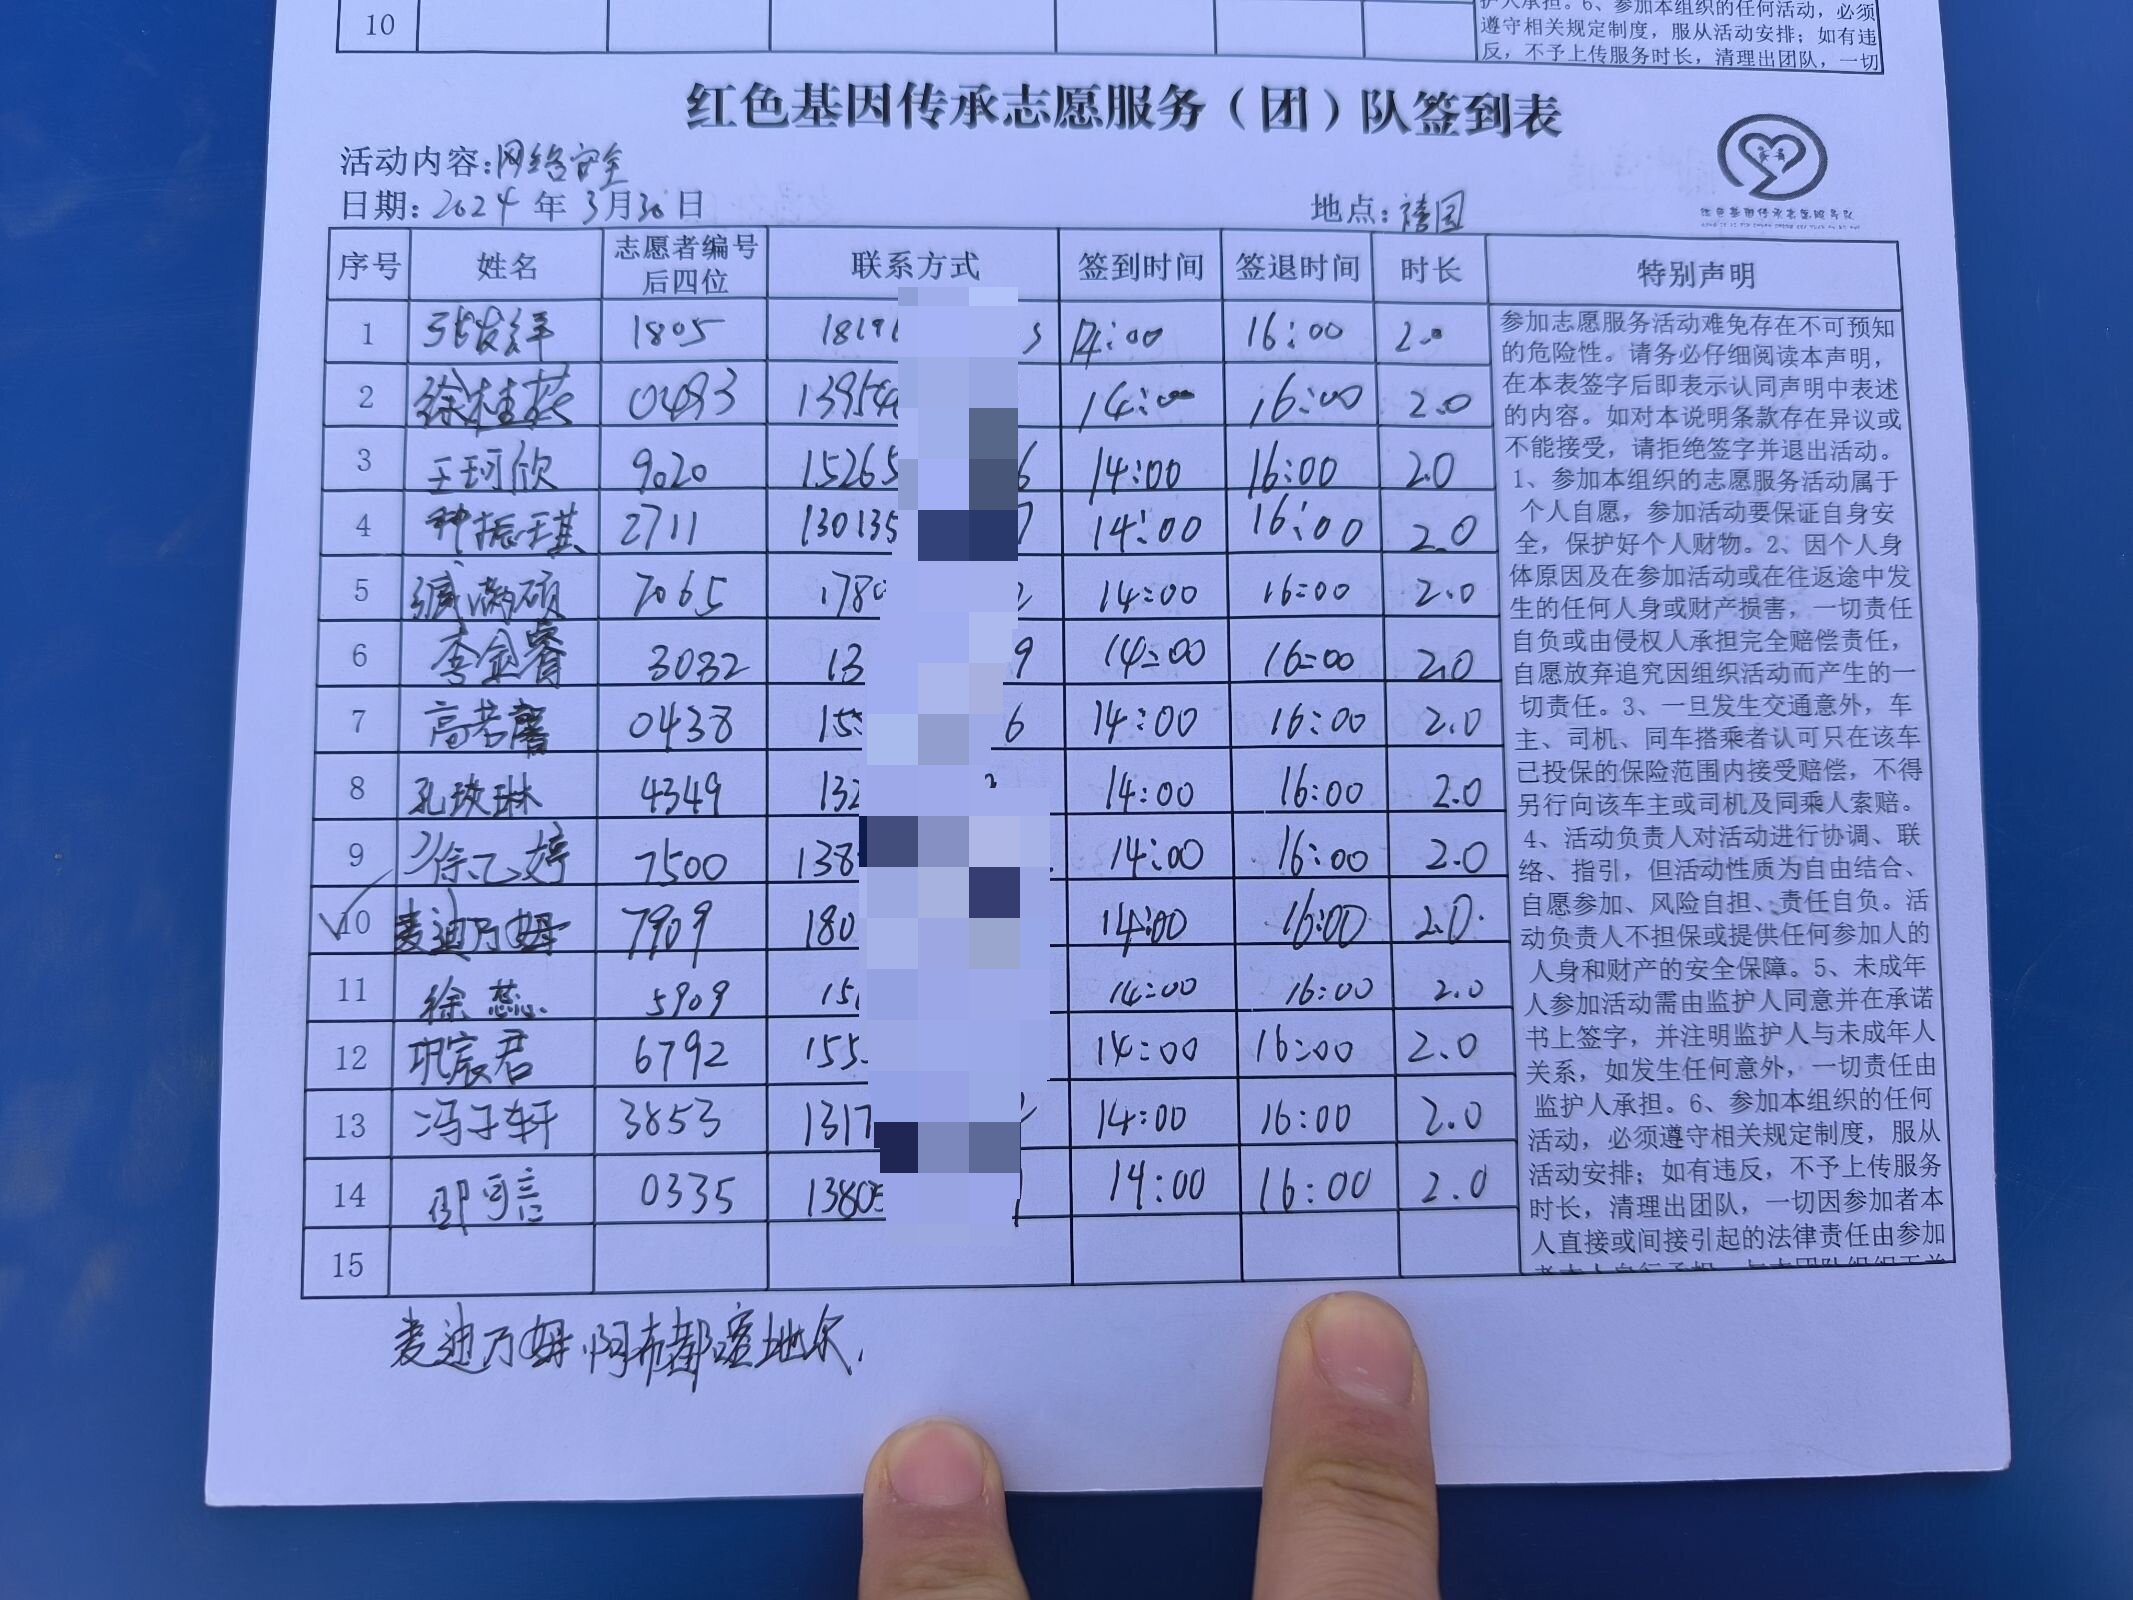 10
护人承担。6、参加本组织的任何活动，必须
遵守相关规定制度，服从活动安排；如有违
反，不予上传服务时长，清理出团队，一切
红色基因传承志愿服务（团）队签到表
活动内容：网络安全
日期：2024年3月30日 地点：禧园
序号 姓名 志愿者编号后四位 联系方式 签到时间 签退时间 时长 特别声明
1 1805 1819 3 14:00 16:00 2.0
2 徐桂荻 0493 13954 14:00 16:00 2.0
3 王珂欣 9020 15265 6 14:00 16:00 2.0
4 种振琪 2711 130135 7 14:00 16:00 2.0
5 臧满硕 7065 178 2 14:00 16:00 2.0
6 李金睿 3032 13 9 14:00 16:00 2.0
7 高若馨 0438 155 6 14:00 16:00 2.0
8 孔琰琳 4349 132 2 14:00 16:00 2.0
9 徐乙婷 7500 138 14:00 16:00 2.0
10 麦迪乃姆 7909 180 14:00 16:00 2.0
11 徐蕊 5909 15 14:00 16:00 2.0
12 巩宸君 6792 155 14:00 16:00 2.0
13 冯子轩 3853 1317 2 14:00 16:00 2.0
14 邵可言 0335 13805 14:00 16:00 2.0
15
参加志愿服务活动难免存在不可预知
的危险性。请务必仔细阅读本声明，
在本表签字后即表示认同声明中表述
的内容。如对本说明条款存在异议或
不能接受，请拒绝签字并退出活动。
1、参加本组织的志愿服务活动属于
个人自愿，参加活动要保证自身安
全，保护好个人财物。2、因个人身
体原因及在参加活动或在往返途中发
生的任何人身或财产损害，一切责任
自负或由侵权人承担完全赔偿责任，
自愿放弃追究因组织活动而产生的一
切责任。3、一旦发生交通意外，车
主、司机、同车搭乘者认可只在该车
已投保的保险范围内接受赔偿，不得
另行向该车主或司机及同乘人索赔。
4、活动负责人对活动进行协调、联
络、指引，但活动性质为自由结合、
自愿参加、风险自担、责任自负。活
动负责人不担保或提供任何参加人的
人身和财产的安全保障。5、未成年
人参加活动需由监护人同意并在承诺
书上签字，并注明监护人与未成年人
关系，如发生任何意外，一切责任由
监护人承担。6、参加本组织的任何
活动，必须遵守相关规定制度，服从
活动安排；如有违反，不予上传服务
时长，清理出团队，一切因参加者本
人直接或间接引起的法律责任由参加
麦迪乃姆·阿布都蜜地尔